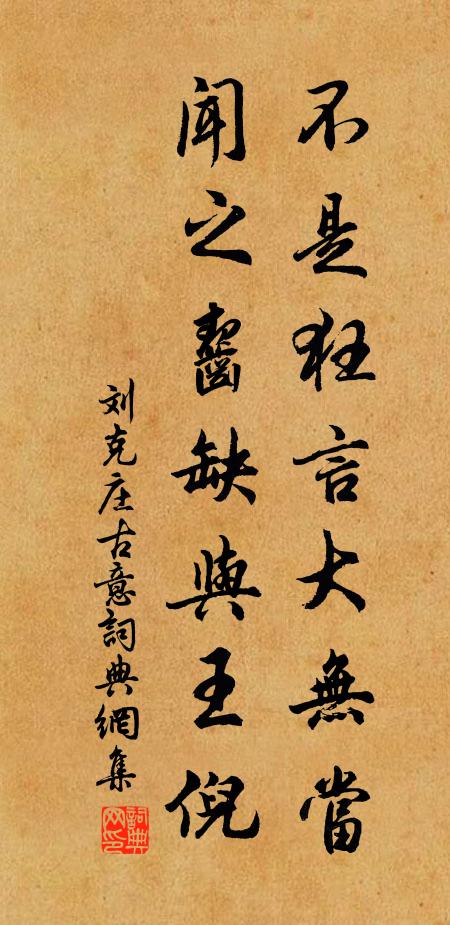 不是狂言大無當
聞之齧缺與王倪
刘克庄古意詞典網集
詞典网印